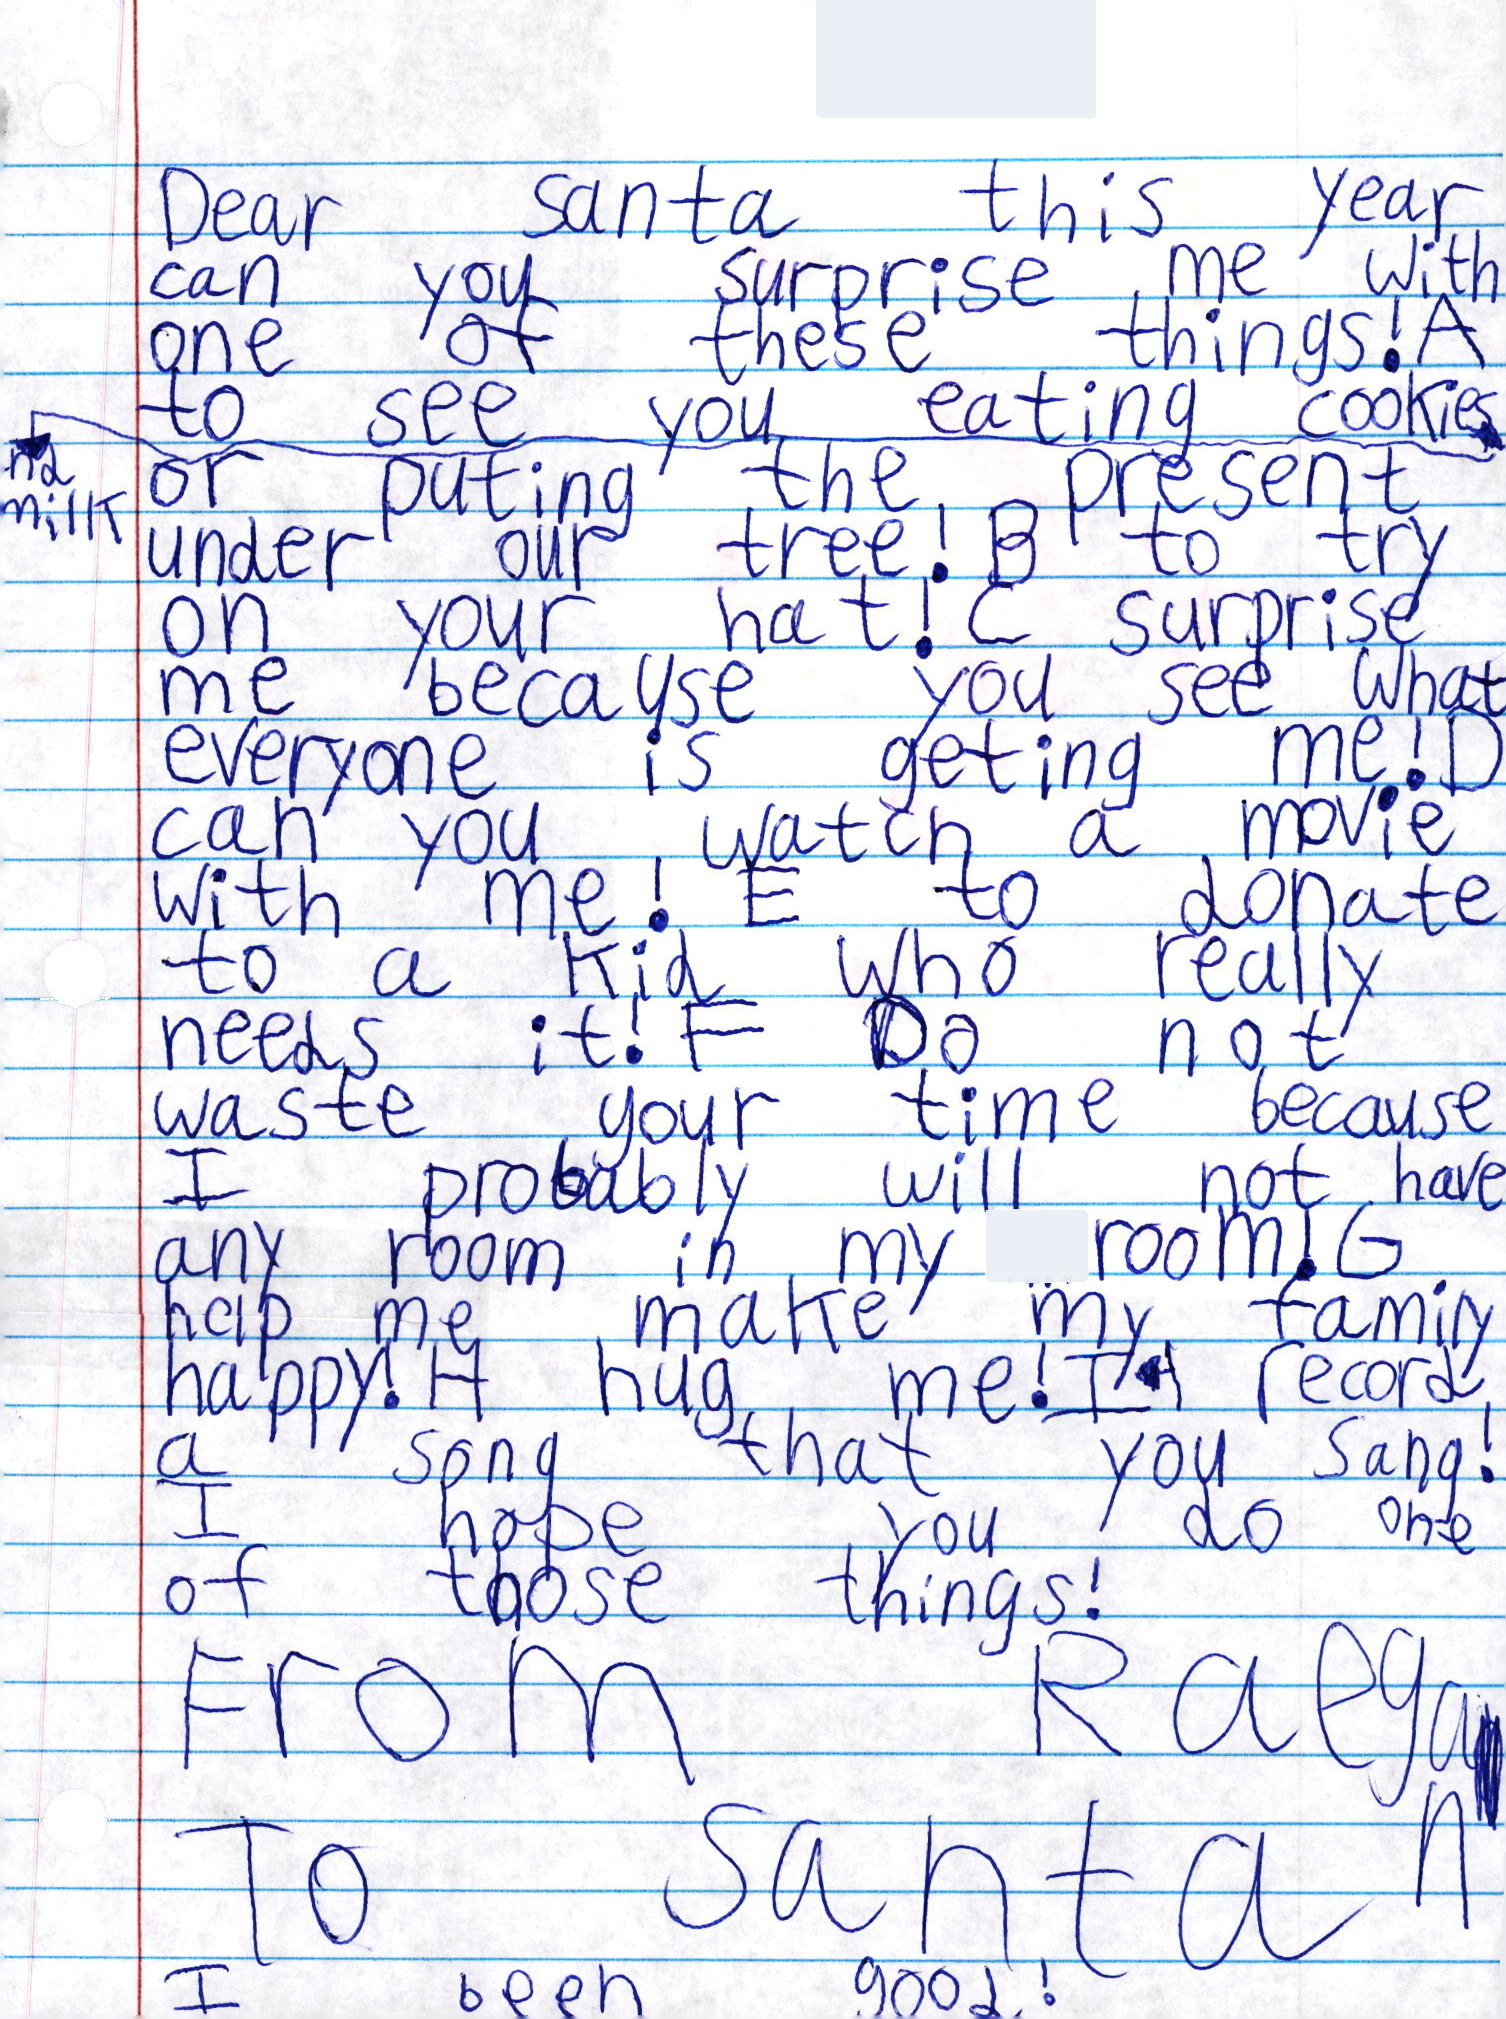 Dear santa this year
can you surprise me with
one of these things! A
to see you eating cookies
nd
millk
or puting the present
under our tree! B to try
on your hat! C surprise
me because you see what
everyone is geting me! D
can you watch a movie
with me! E to donate
to a kid who really
needs it! F Do not
waste your time because
I probably will not have
any room in my room! G
help me make my family
happy! H hug me! I record
a song that you sang!
I hope you do one
of those things!
From Raegan
To Santa
I been good!